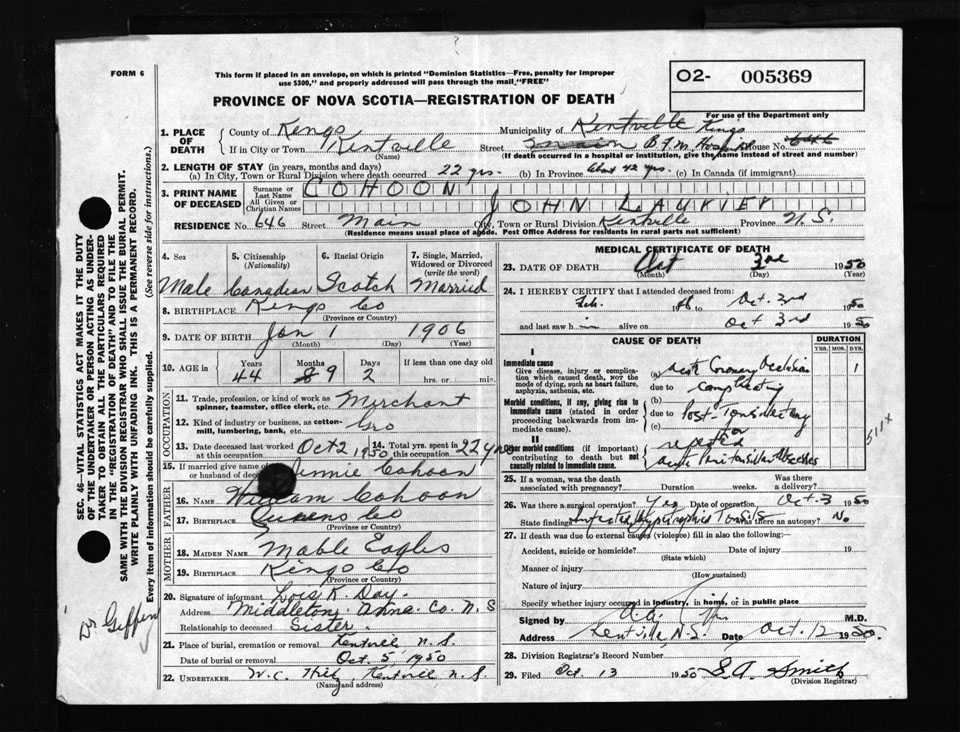 FORM 6
This form if placed in an envelope, on which is printed "Dominion Statistics—Free, penalty for improper
use $300," and properly addressed will pass through the mail "FREE"
O2- 005369
PROVINCE OF NOVA SCOTIA—REGISTRATION OF DEATH
For use of the Department only
1. PLACE OF DEATH
County of Kings Municipality of Kentville Kings
If in City or Town Kentville Street Main B.F.M. Hospital House No. 646
(Name) (If death occurred in a hospital or institution, give the name instead of street and number)
2. LENGTH OF STAY (in years, months and days)
(a) In City, Town or Rural Division where death occurred 22 yrs. (b) In Province About 42 yrs. (c) In Canada (if immigrant)
3. PRINT NAME OF DECEASED
Surname or Last Name COHOON
All Given or Christian Names JOHN LAURIER
RESIDENCE No. 646 Street Main City, Town or Rural Division Kentville Province N.S.
(Residence means usual place of abode. Post Office Address for residents in rural parts not sufficient)
4. Sex 5. Citizenship (Nationality) 6. Racial Origin 7. Single, Married, Widowed or Divorced (write the word)
Male Canadian Scotch Married
8. BIRTHPLACE Kings Co
(Province or Country)
9. DATE OF BIRTH Jan 1 1906
(Month) (Day) (Year)
10. AGE in Years Months Days If less than one day old
44 9 2 hrs. or min.
OCCUPATION
11. Trade, profession, or kind of work as spinner, teamster, office clerk, etc. Merchant
12. Kind of industry or business, as cotton-mill, lumbering, bank, etc. Gro
13. Date deceased last worked at this occupation Oct 2 1950 14. Total yrs. spent in this occupation 22 yrs
15. If married give name of wife or husband of deceased Minnie Cohoon
FATHER
16. NAME William Cohoon
17. BIRTHPLACE Queens Co
(Province or Country)
MOTHER
18. MAIDEN NAME Mable Eagles
19. BIRTHPLACE Kings Co
(Province or Country)
20. Signature of informant Lois K. Day
Address Middleton, Anna. Co. N.S
Relationship to deceased Sister
21. Place of burial, cremation or removal Kentville N.S.
Date of burial or removal Oct. 5, 1950
22. UNDERTAKER W.C. Hiltz, Kentville N.S
(Name and address)
MEDICAL CERTIFICATE OF DEATH
23. DATE OF DEATH Oct 3rd 1950
(Month) (Day) (Year)
24. I HEREBY CERTIFY that I attended deceased from
Feb. to Oct. 3rd 1950
and last saw him alive on Oct 3rd 1950
CAUSE OF DEATH
DURATION
YRS. MOS. DYS.
I
Immediate cause
Give disease, injury or complication which caused death, NOT the mode of dying, such as heart failure, asphyxia, asthenia, etc.
(a) Acute Coronary Occlusion 1
due to complicating
Morbid conditions, if any, giving rise to immediate cause (stated in order proceeding backwards from immediate cause).
(b)
due to Post-Tonsillectomy
(c) for
II
Other morbid conditions (if important) contributing to death but not causally related to immediate cause.
repeated
acute Peritonsillar Abscesses
511x
25. If a woman, was the death associated with pregnancy? Duration weeks. Was there a delivery?
26. Was there a surgical operation? Yes Date of operation Oct. 3 1950
State findings Infected, Hypertrophied Tonsils Was there an autopsy? No
27. If death was due to external causes (violence) fill in also the following:—
Accident, suicide or homicide? Date of injury 19
(State which)
Manner of injury
(How sustained)
Nature of injury
Specify whether injury occurred in industry, in home, or in public place
Signed by M.D.
Address Kentville, N.S. Date Oct. 12 1950.
28. Division Registrar's Record Number
29. Filed Oct. 13 1950 S.A. Smith
(Division Registrar)
SEC. 46—VITAL STATISTICS ACT MAKES IT THE DUTY
OF THE UNDERTAKER OR PERSON ACTING AS UNDER-
TAKER TO OBTAIN ALL THE PARTICULARS REQUIRED
IN THE "REGISTRATION OF DEATH" AND TO FILE THE
SAME WITH THE DIVISION REGISTRAR WHO SHALL ISSUE THE BURIAL PERMIT.
WRITE PLAINLY WITH UNFADING INK. THIS IS A PERMANENT RECORD.
Every item of information should be carefully supplied. (See reverse side for instructions.)
Dr Giffin